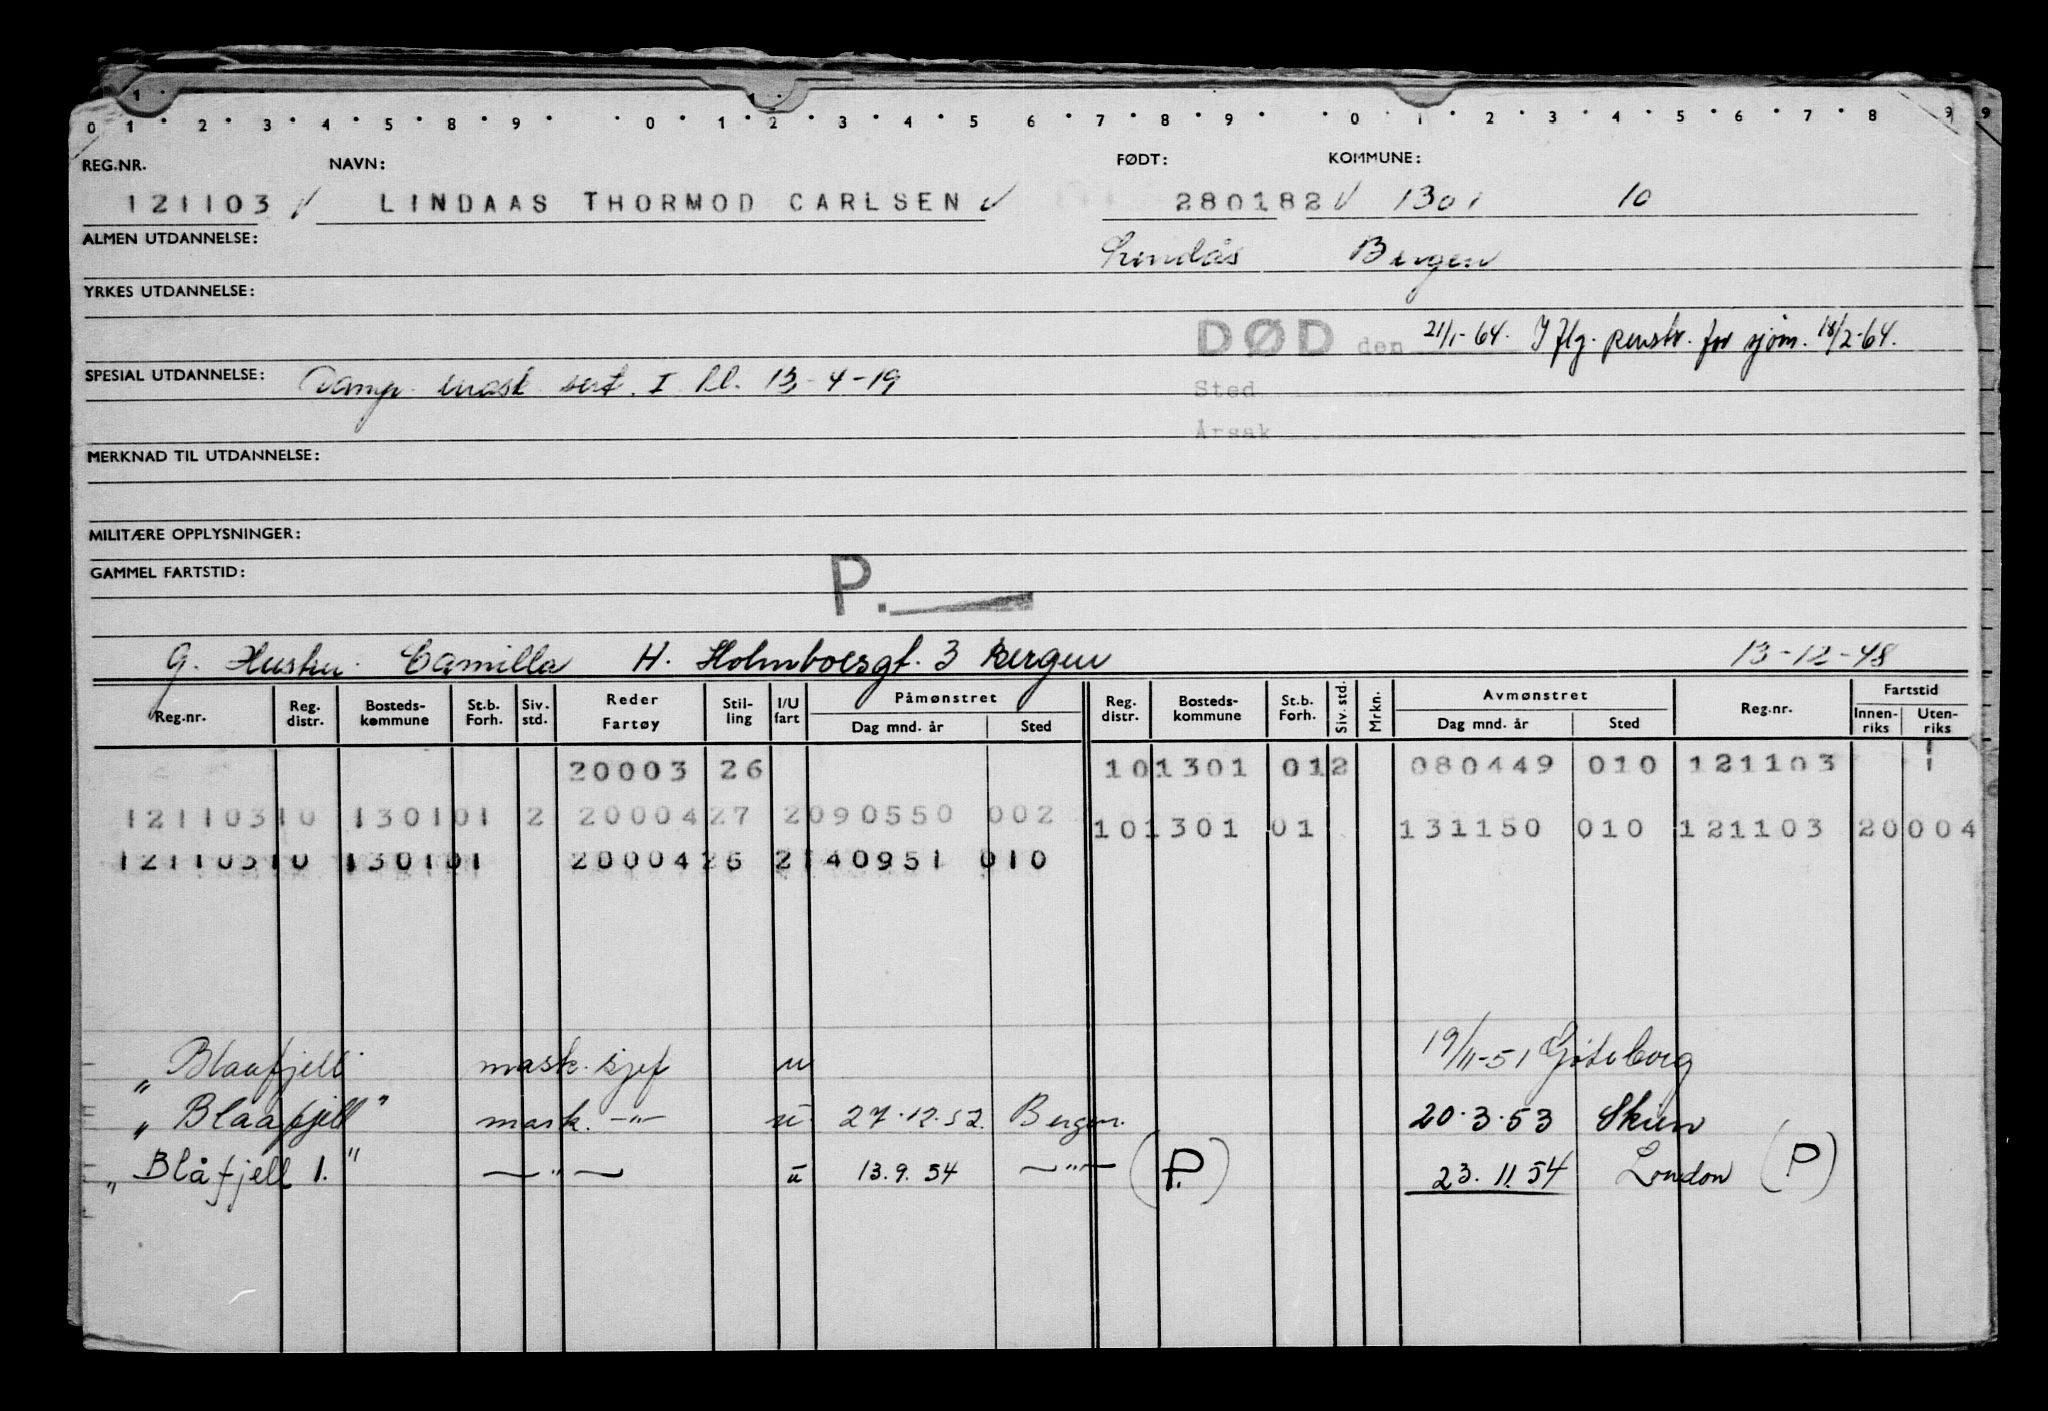 0 1 2 3 4 5 6 7 8 9 0 1 2 3 4 5 6 7 8 9 0 1 2 3 4 5 6 7 8 9 9
REG.NR. NAVN: FØDT: KOMMUNE:
121103 √ LINDAAS THORMOD CARLSEN √ 280182 √ 1301 10
ALMEN UTDANNELSE: Lindås Bergen
YRKES UTDANNELSE:
DØD den 21/1-64. I flg. penstr. for sjøm. 18/2-64.
SPESIAL UTDANNELSE: Damp. mask sert. I kl. 13-4-19
Sted
Årsak
MERKNAD TIL UTDANNELSE:
MILITÆRE OPPLYSNINGER:
GAMMEL FARTSTID:
P.
G. Hustru Camilla H. Holmboesgt. 3 Bergen 13-12-48
Reg.nr. Reg. distr. Bosteds-kommune St.b. Forh. Siv. std. Reder Fartøy Stil-ling I/U fart Påmønstret Dag mnd. år Sted Reg. distr. Bosteds-kommune St.b. Forh. Siv. std. Mrkn. Avmønstret Dag mnd. år Sted Reg.nr. Fartstid Innen-riks Uten-riks
20003 26 101301 012 080449 010 121103 1
12110310 130101 2 2000427 2090550 002 101301 01 131150 010 121103 20004
12110310 130101 2000426 2140951 010
" Blaafjell mask. sjef u 19/11-51 Göteborg
" Blaafjell " mask. -"- u 27.12.52. Bergen. 20.3.53 Skien
" Blåfjell 1. " -"- u 13.9.54 -"- (P.) 23.11.54 London (P)